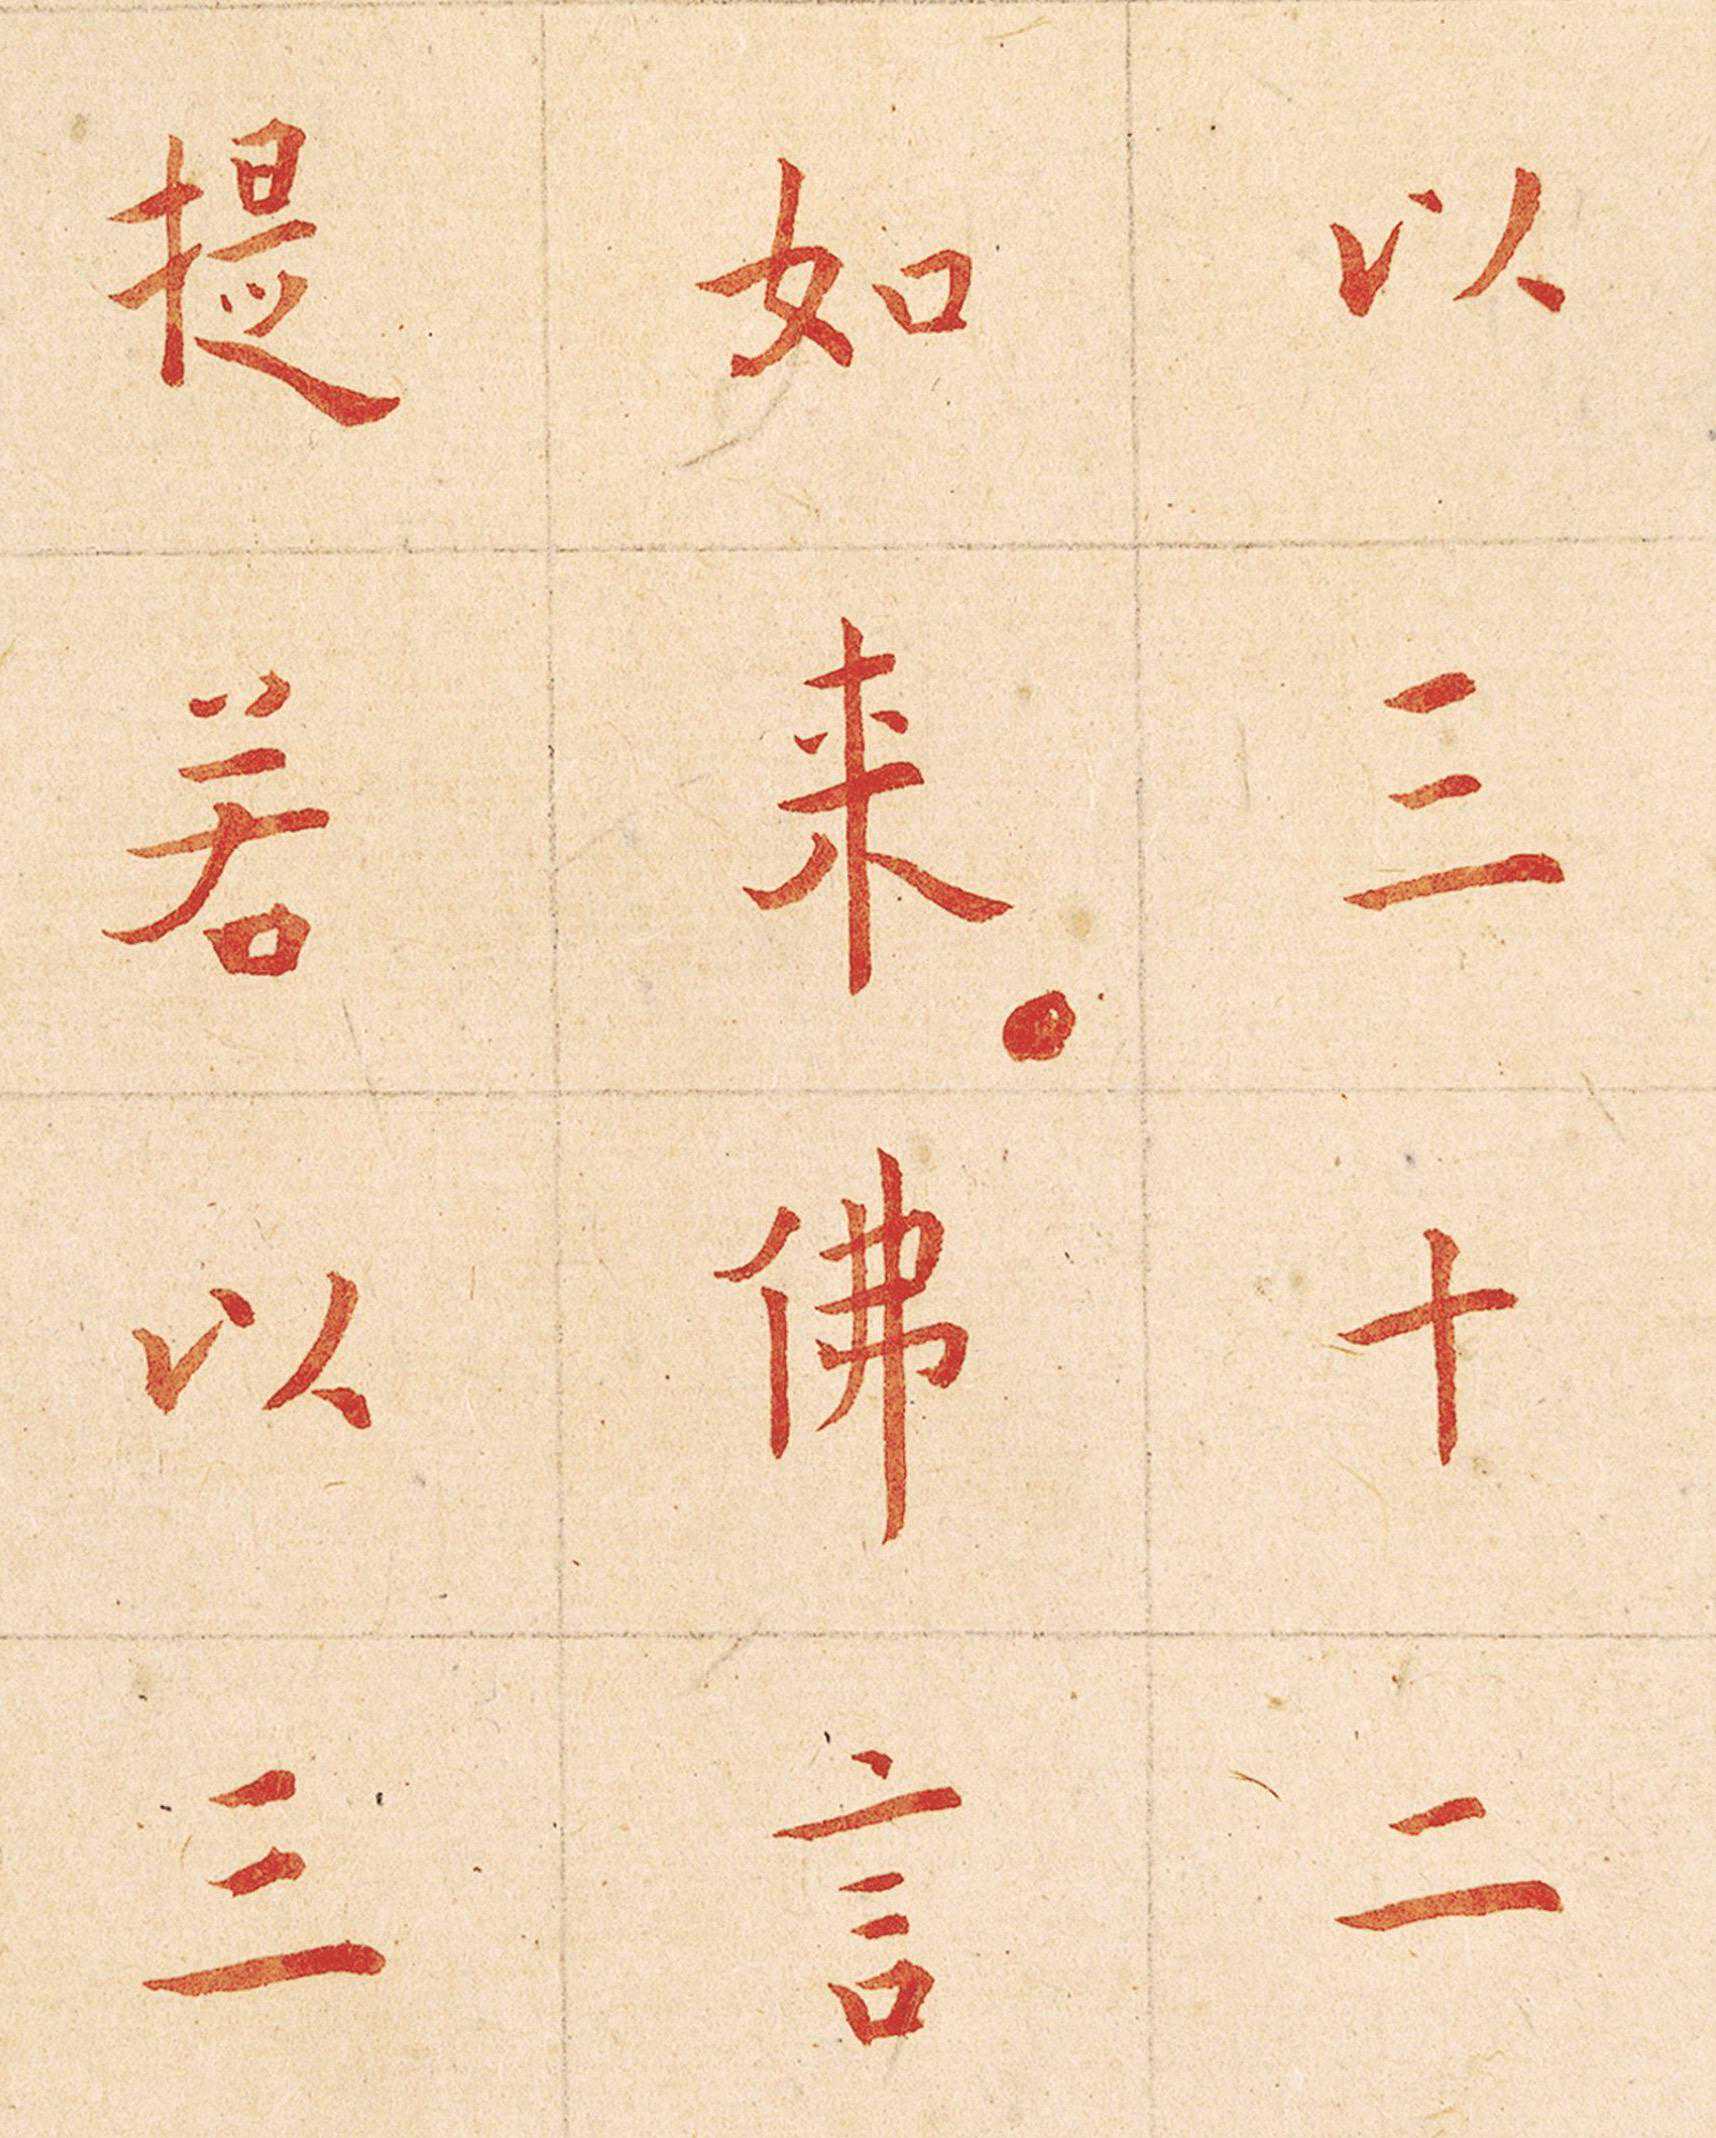 以三十二
如来。佛言
提若以三